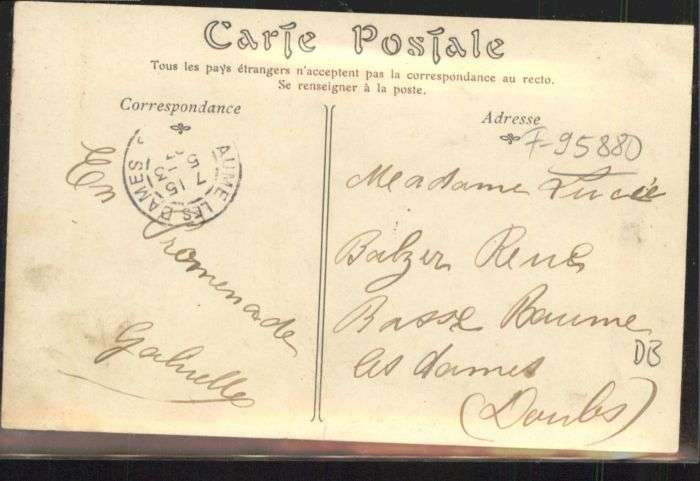 Carte Postale
Tous les pays étrangers n'acceptent pas la correspondance au recto.
Se renseigner à la poste.
Correspondance
Adresse
F-95880
AUME LES DAMES
En Promenade
Gabrielle
Madame Lucie
Balzer René
Basse Baume
les dames
(Doubs)
DB